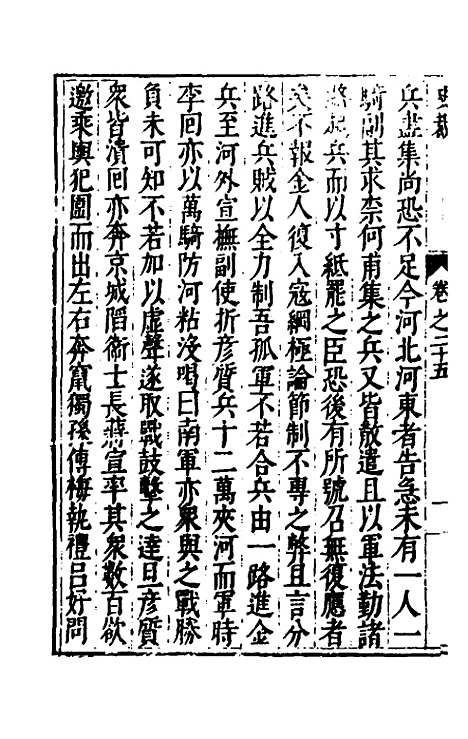 卷之二十五
兵盡集尚恐不足今河北河東者告急未有一人一
騎副其求柰何甫集之兵又皆散遣且以軍法勒諸
路起兵而以寸紙罷之臣恐後有所號召無復應者
矣不報金人復入寇綱極論節制不專之弊且言分
路進兵賊以全力制吾孤軍不若合兵由一路進金
兵至河外宣撫副使折彥質兵十二萬夾河而軍時
李回亦以萬騎防河粘没喝曰南軍亦衆與之戰勝
負未可知不若加以虛聲遂取戰鼓擊之達旦彥質
衆皆潰回亦奔京城陷衛士長蔣宣率其衆數百欲
邀乘輿犯圍而出左右奔竄獨孫傅梅執禮呂好問